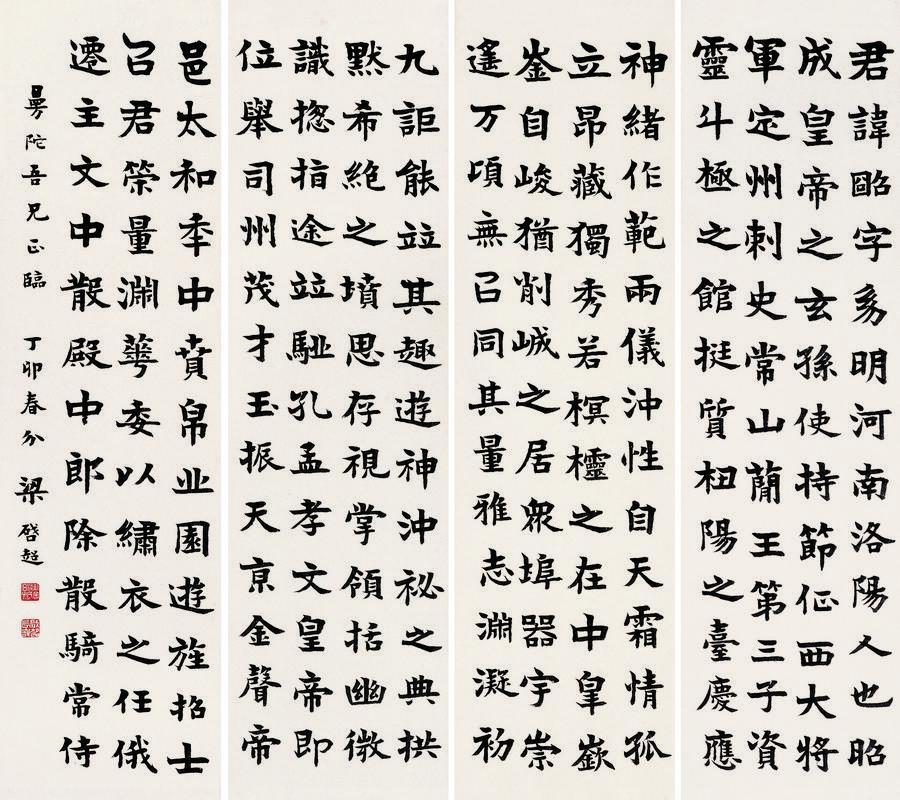 君諱昭字幼明河南洛陽人也昭
成皇帝之玄孫使持節征西大將
軍定州刺史常山蕳王第三子資
靈斗極之館挺質杻陽之臺慶應
神緒作範兩儀沖性自天霜情孤
立昂藏獨秀若榠櫺之在中皋嶔
崟自峻猶削峸之居衆埠器宇崇
遙万頃無已同其量雅志淵凝初
九詎能竝其趣遊神沖祕之典拱
默希絶之墳思存視掌領括幽微
識揔指途竝駈孔孟孝文皇帝即
位舉司州茂才玉振天京金聲帝
邑太和年中賁帛丘園遊旌招士
召君榮量淵華委以繡衣之任俄
遷主文中散殿中郎除散騎常侍
曼陀吾兄正臨 丁卯春分 梁啓超